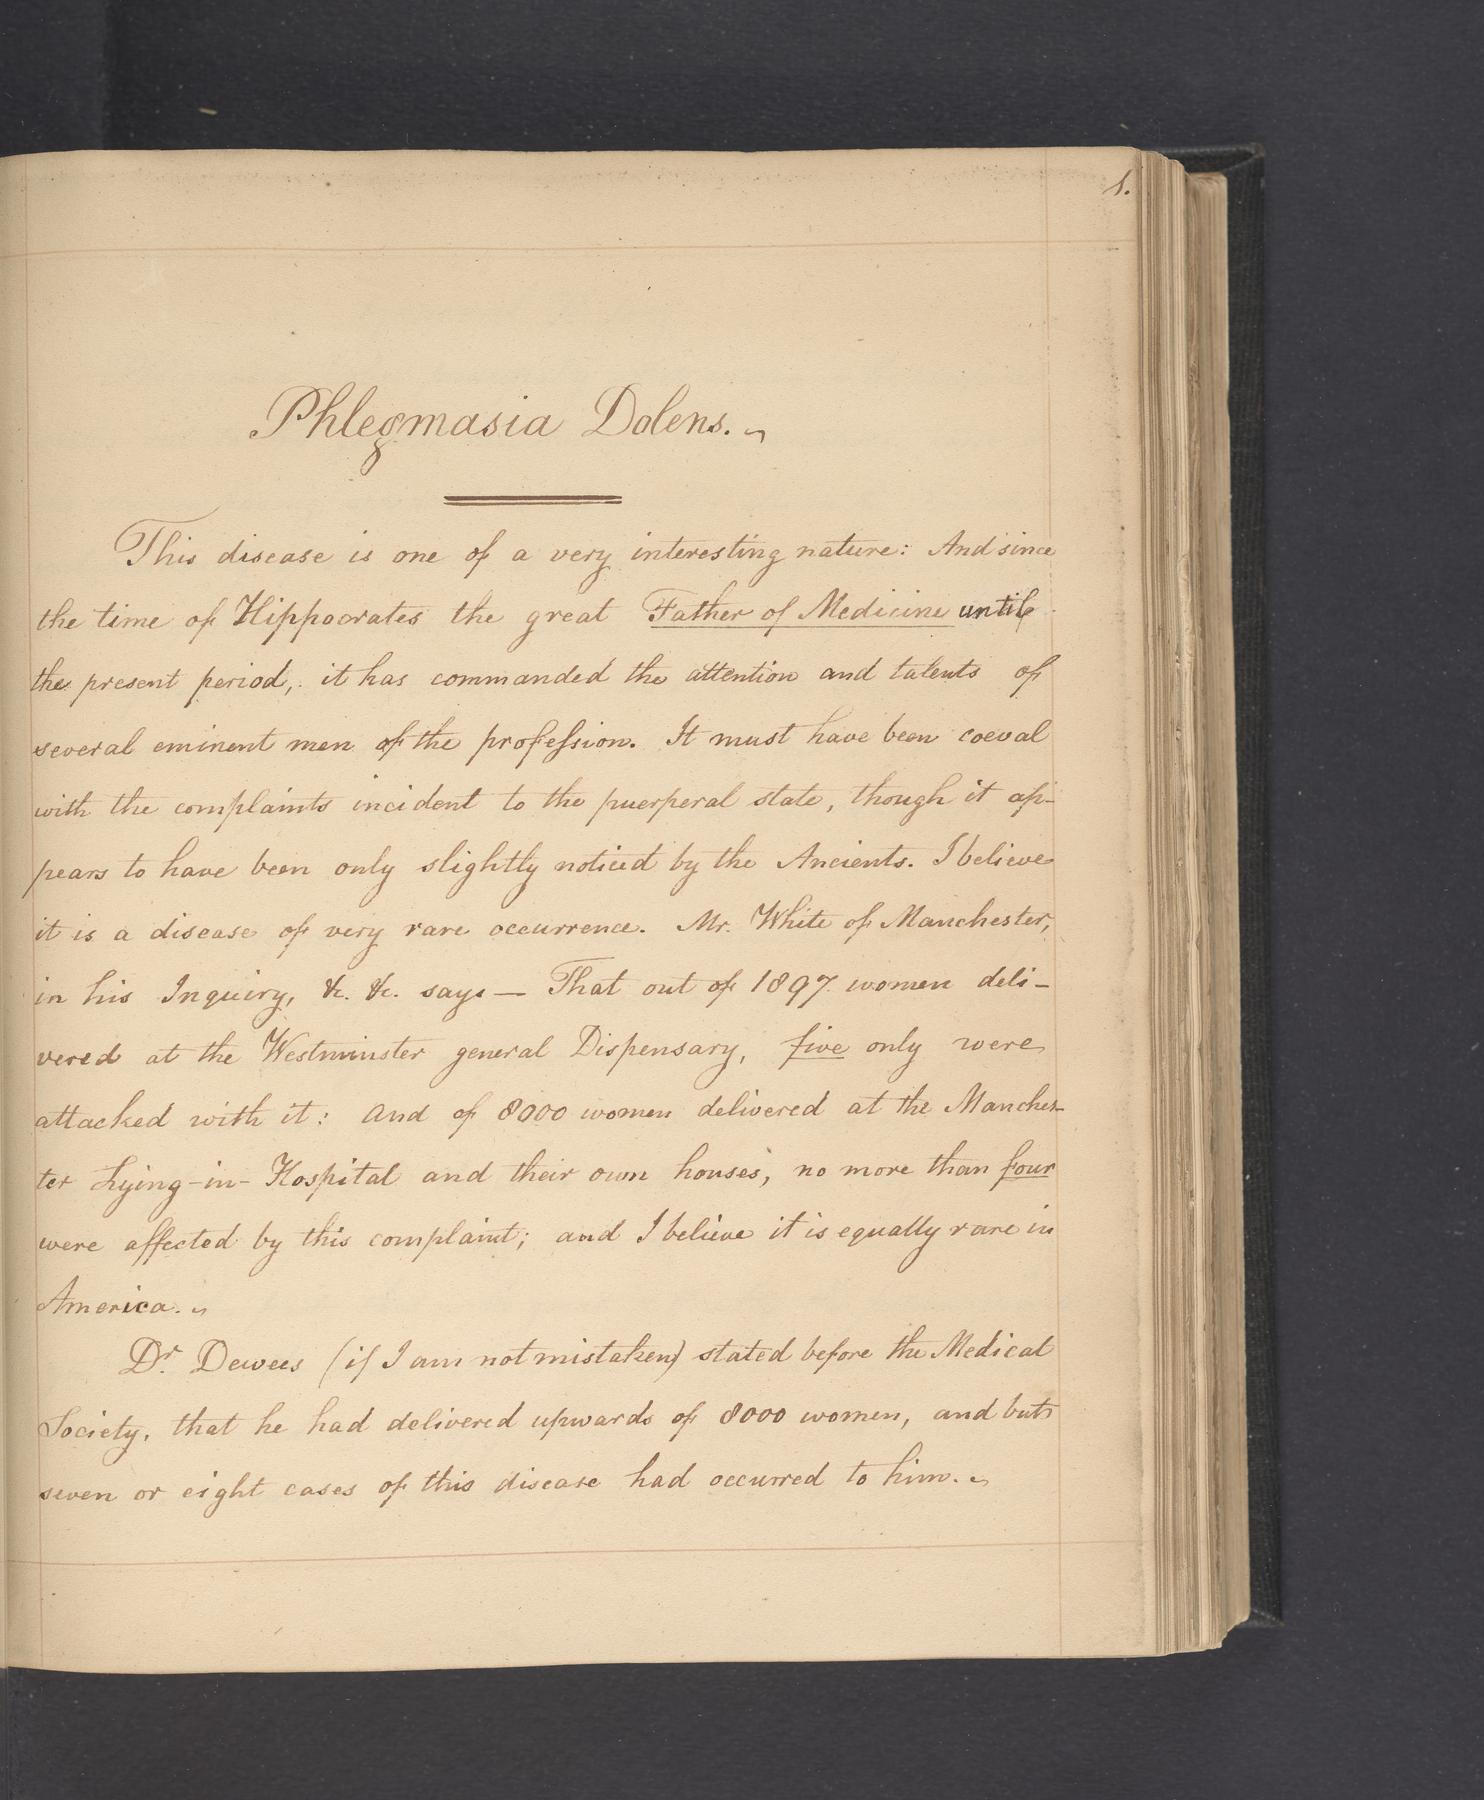 1.
Phlegmasia Dolens.
This disease is one of a very interesting nature: And since
the time of Hippocrates the great Father of Medicine until
the present period, it has commanded the attention and talents of
several eminent men of the profession. It must have been coeval
with the complaints incident to the puerperal state, though it ap-
pears to have been only slightly noticed by the Ancients. I believe
it is a disease of very rare occurrence. Mr. White of Manchester,
in his Inquiry, &c. &c. says — That out of 1897 women deli-
vered at the Westminster general Dispensary, five only were
attacked with it: and of 8000 women delivered at the Manches-
ter Lying-in-Hospital and their own houses, no more than four
were affected by this complaint; and I believe it is equally rare in
America.
Dr. Dewees (if I am not mistaken) stated before the Medical
Society, that he had delivered upwards of 8000 women, and but
seven or eight cases of this disease had occurred to him.